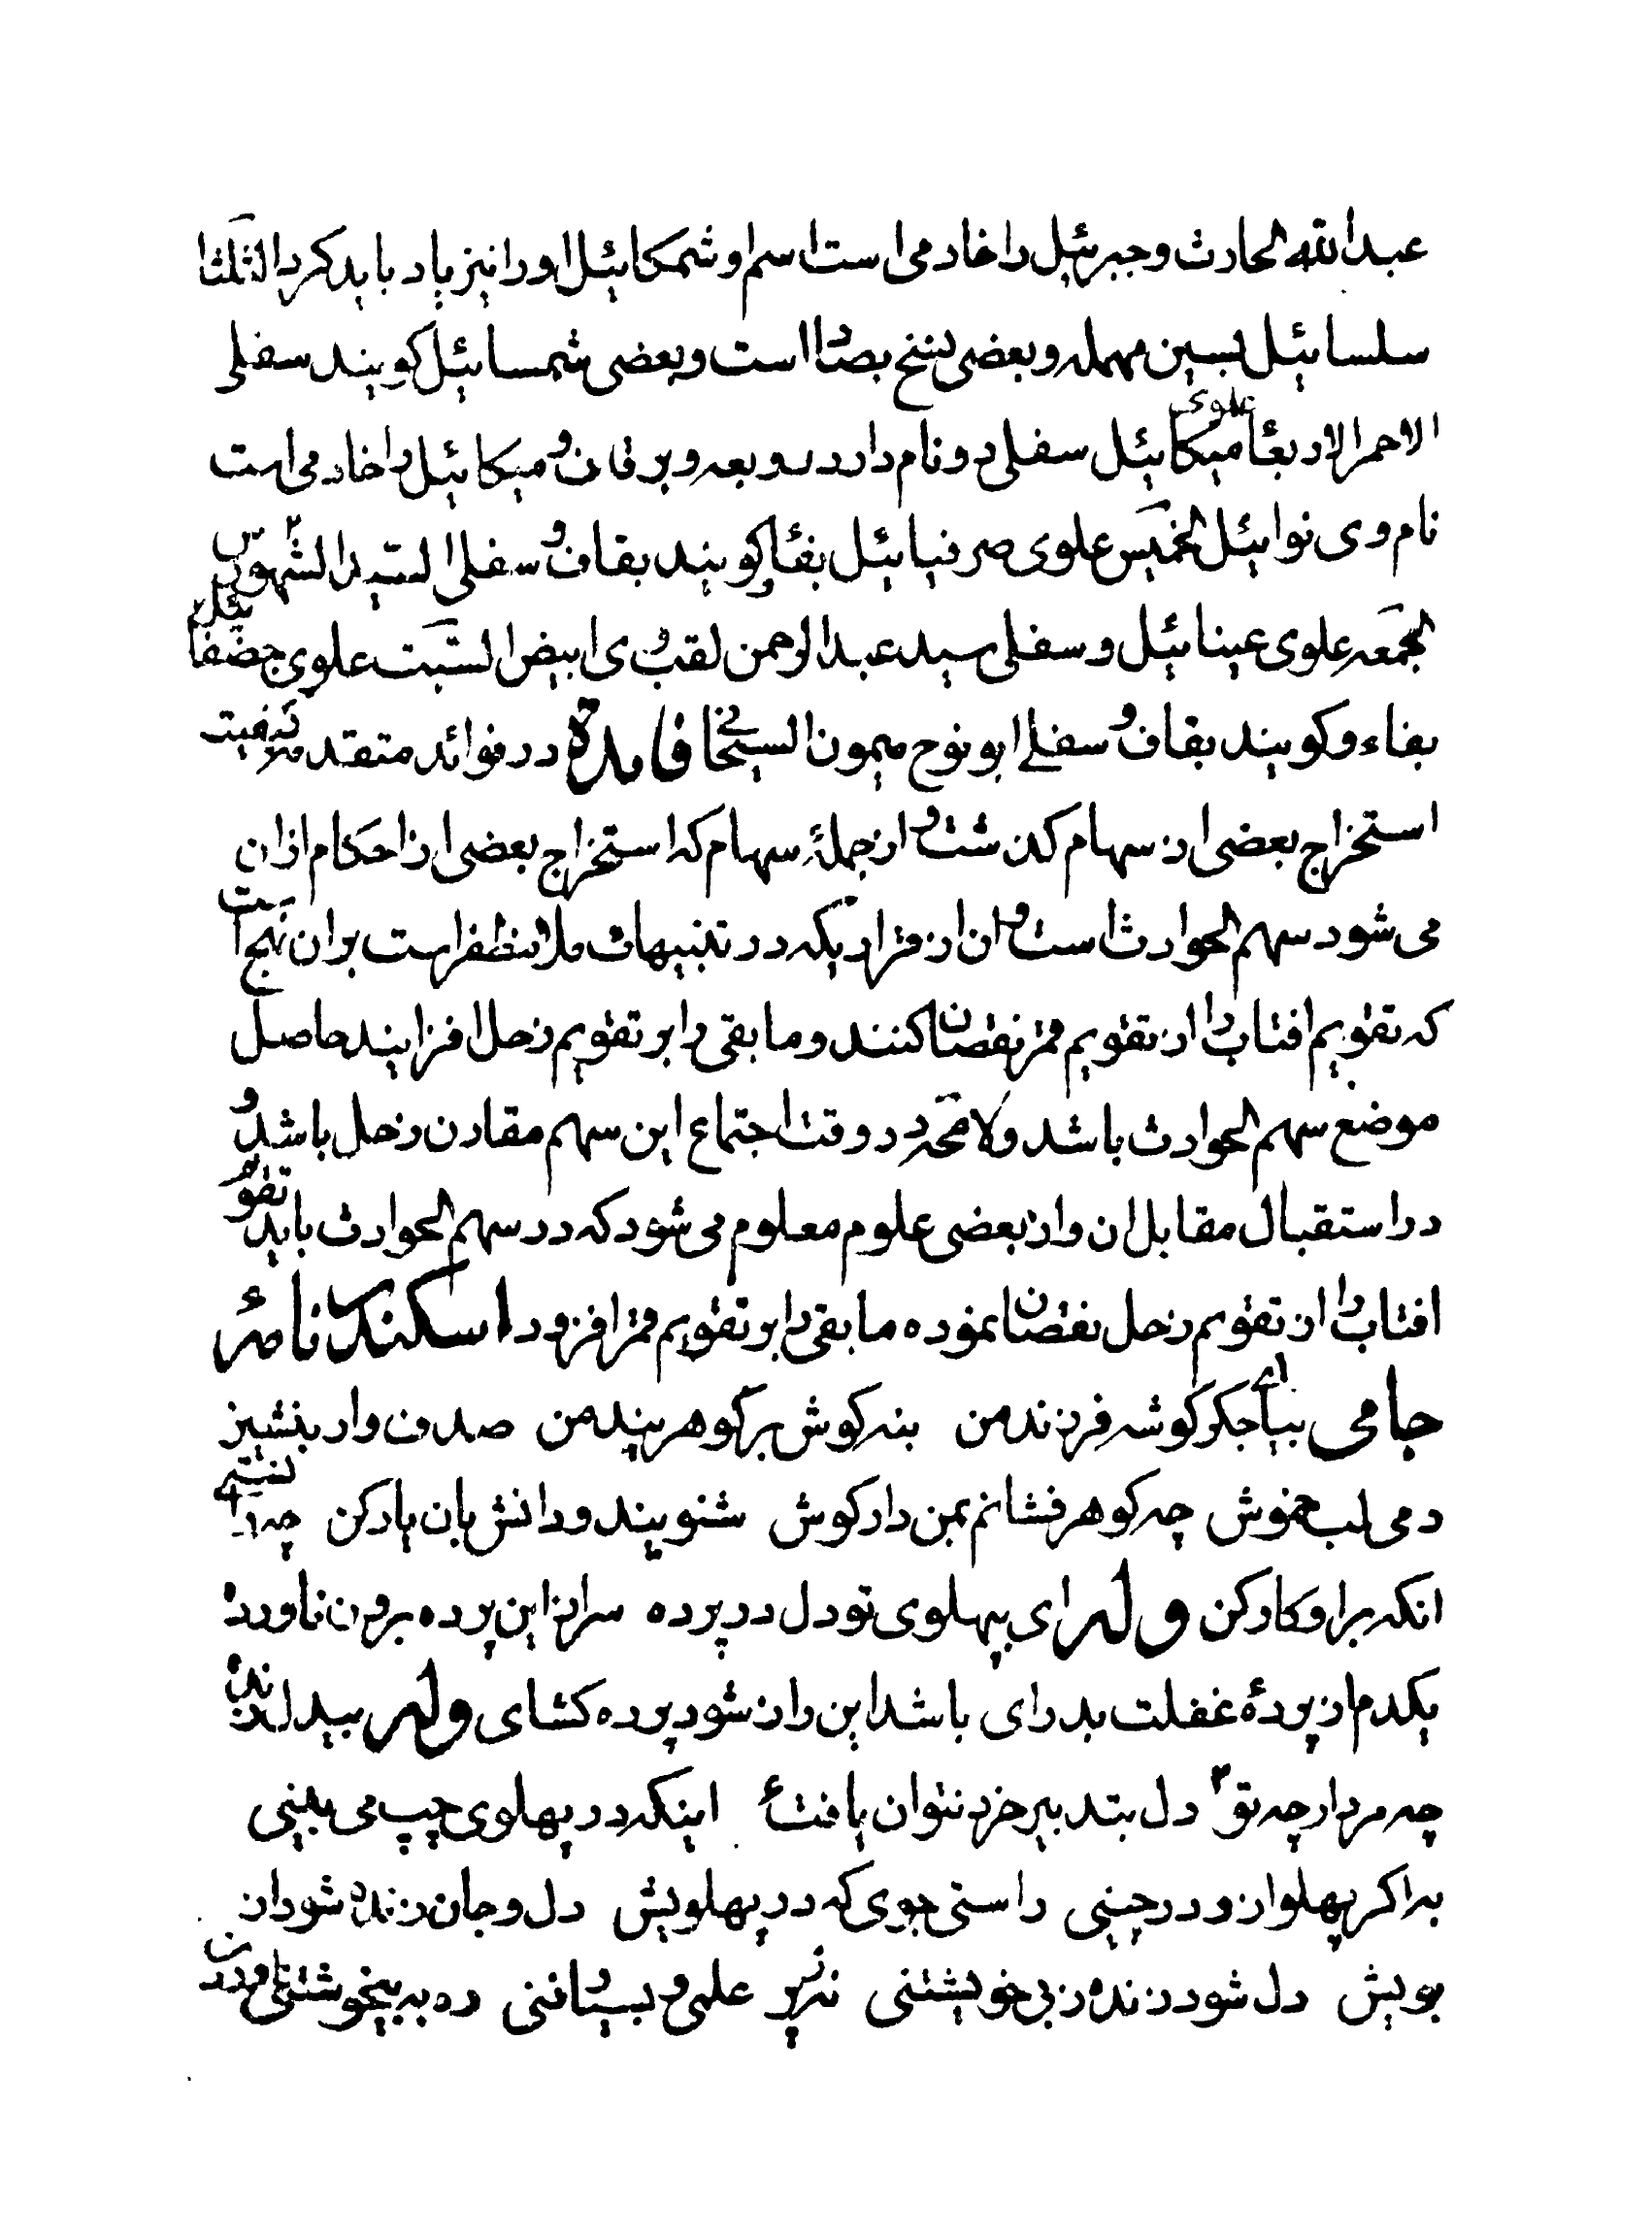 عبدالله الحارث و جبرئیل را خادمی است اسم او شمکائیل او را نیز یاد باید کرد الثلثا
سلسائیل بسین مهمله و بعضی نسخ بصاد است و بعضی شمسائیل کویند سفلی
الاحمر الاربعا علوی میکائیل سفلی دو نام دارد و برقان و میکائیل را خادمی است
نام وی نوائیل الخمیس علوی صرفیائیل بفا و کویند بقاف و سفلی السید الشمهورش
الجمعه علوی عینائیل و سفلی سید عبدالرحمن لقب وی ابیض السبت علوی
بفاء و کویند بقاف و سفلی ابو نوح میمون السحابی فایدة در فوائد متقدمه کیفیت
استخراج بعضی از سهام کذشت و از جملهٔ سهام که استخراج بعضی از احکام ازان
می شود سهم الحوادث است و ان از قراریکه در تنبیهات ملا مظفر است بران نهج است
که تقویم افتاب را از تقویم قمر نقصان کنند و مابقی را بر تقویم زحل افزایند حاصل
موضع سهم الحوادث باشد ولامحه در وقت اجتماع این سهم مقارن زحل باشد و
در استقبال مقابل ان و از بعضی علوم معلوم می شود که در سهم الحوادث باید تقویم
افتاب را از تقویم زحل نقصان نموده مابقی را بر تقویم قمر افزود اسکندرنامهٔ
جامی بیا ای جکر کوشه فرزند من بنه کوش بر کوهر پند من صدف وار بنشین
دمی لب خموش چه کوهر فشانم بمن دار کوش شنو پند و دانش بان یار کن چه دانستی
انکه برو کار کن وله ای بپهلوی تو دل در پرده سر ازین پرده برون ناورده
یکدم از پردهٔ غفلت بدر ای باشد این راز شود پرده کشای وله بیدل زنده
چه مردار چه تو دل بتدبیر خرد نتوان یافت اینکه در پهلوی چپ می بینی
به اکر پهلو ازو در چینی راستی جوی که در پهلویش دل و جان زنده شود از
بویش دل شود زنده ز بی خویشتنی نه ز پر علمی و بسیار فنی ره به بیخویشتنی